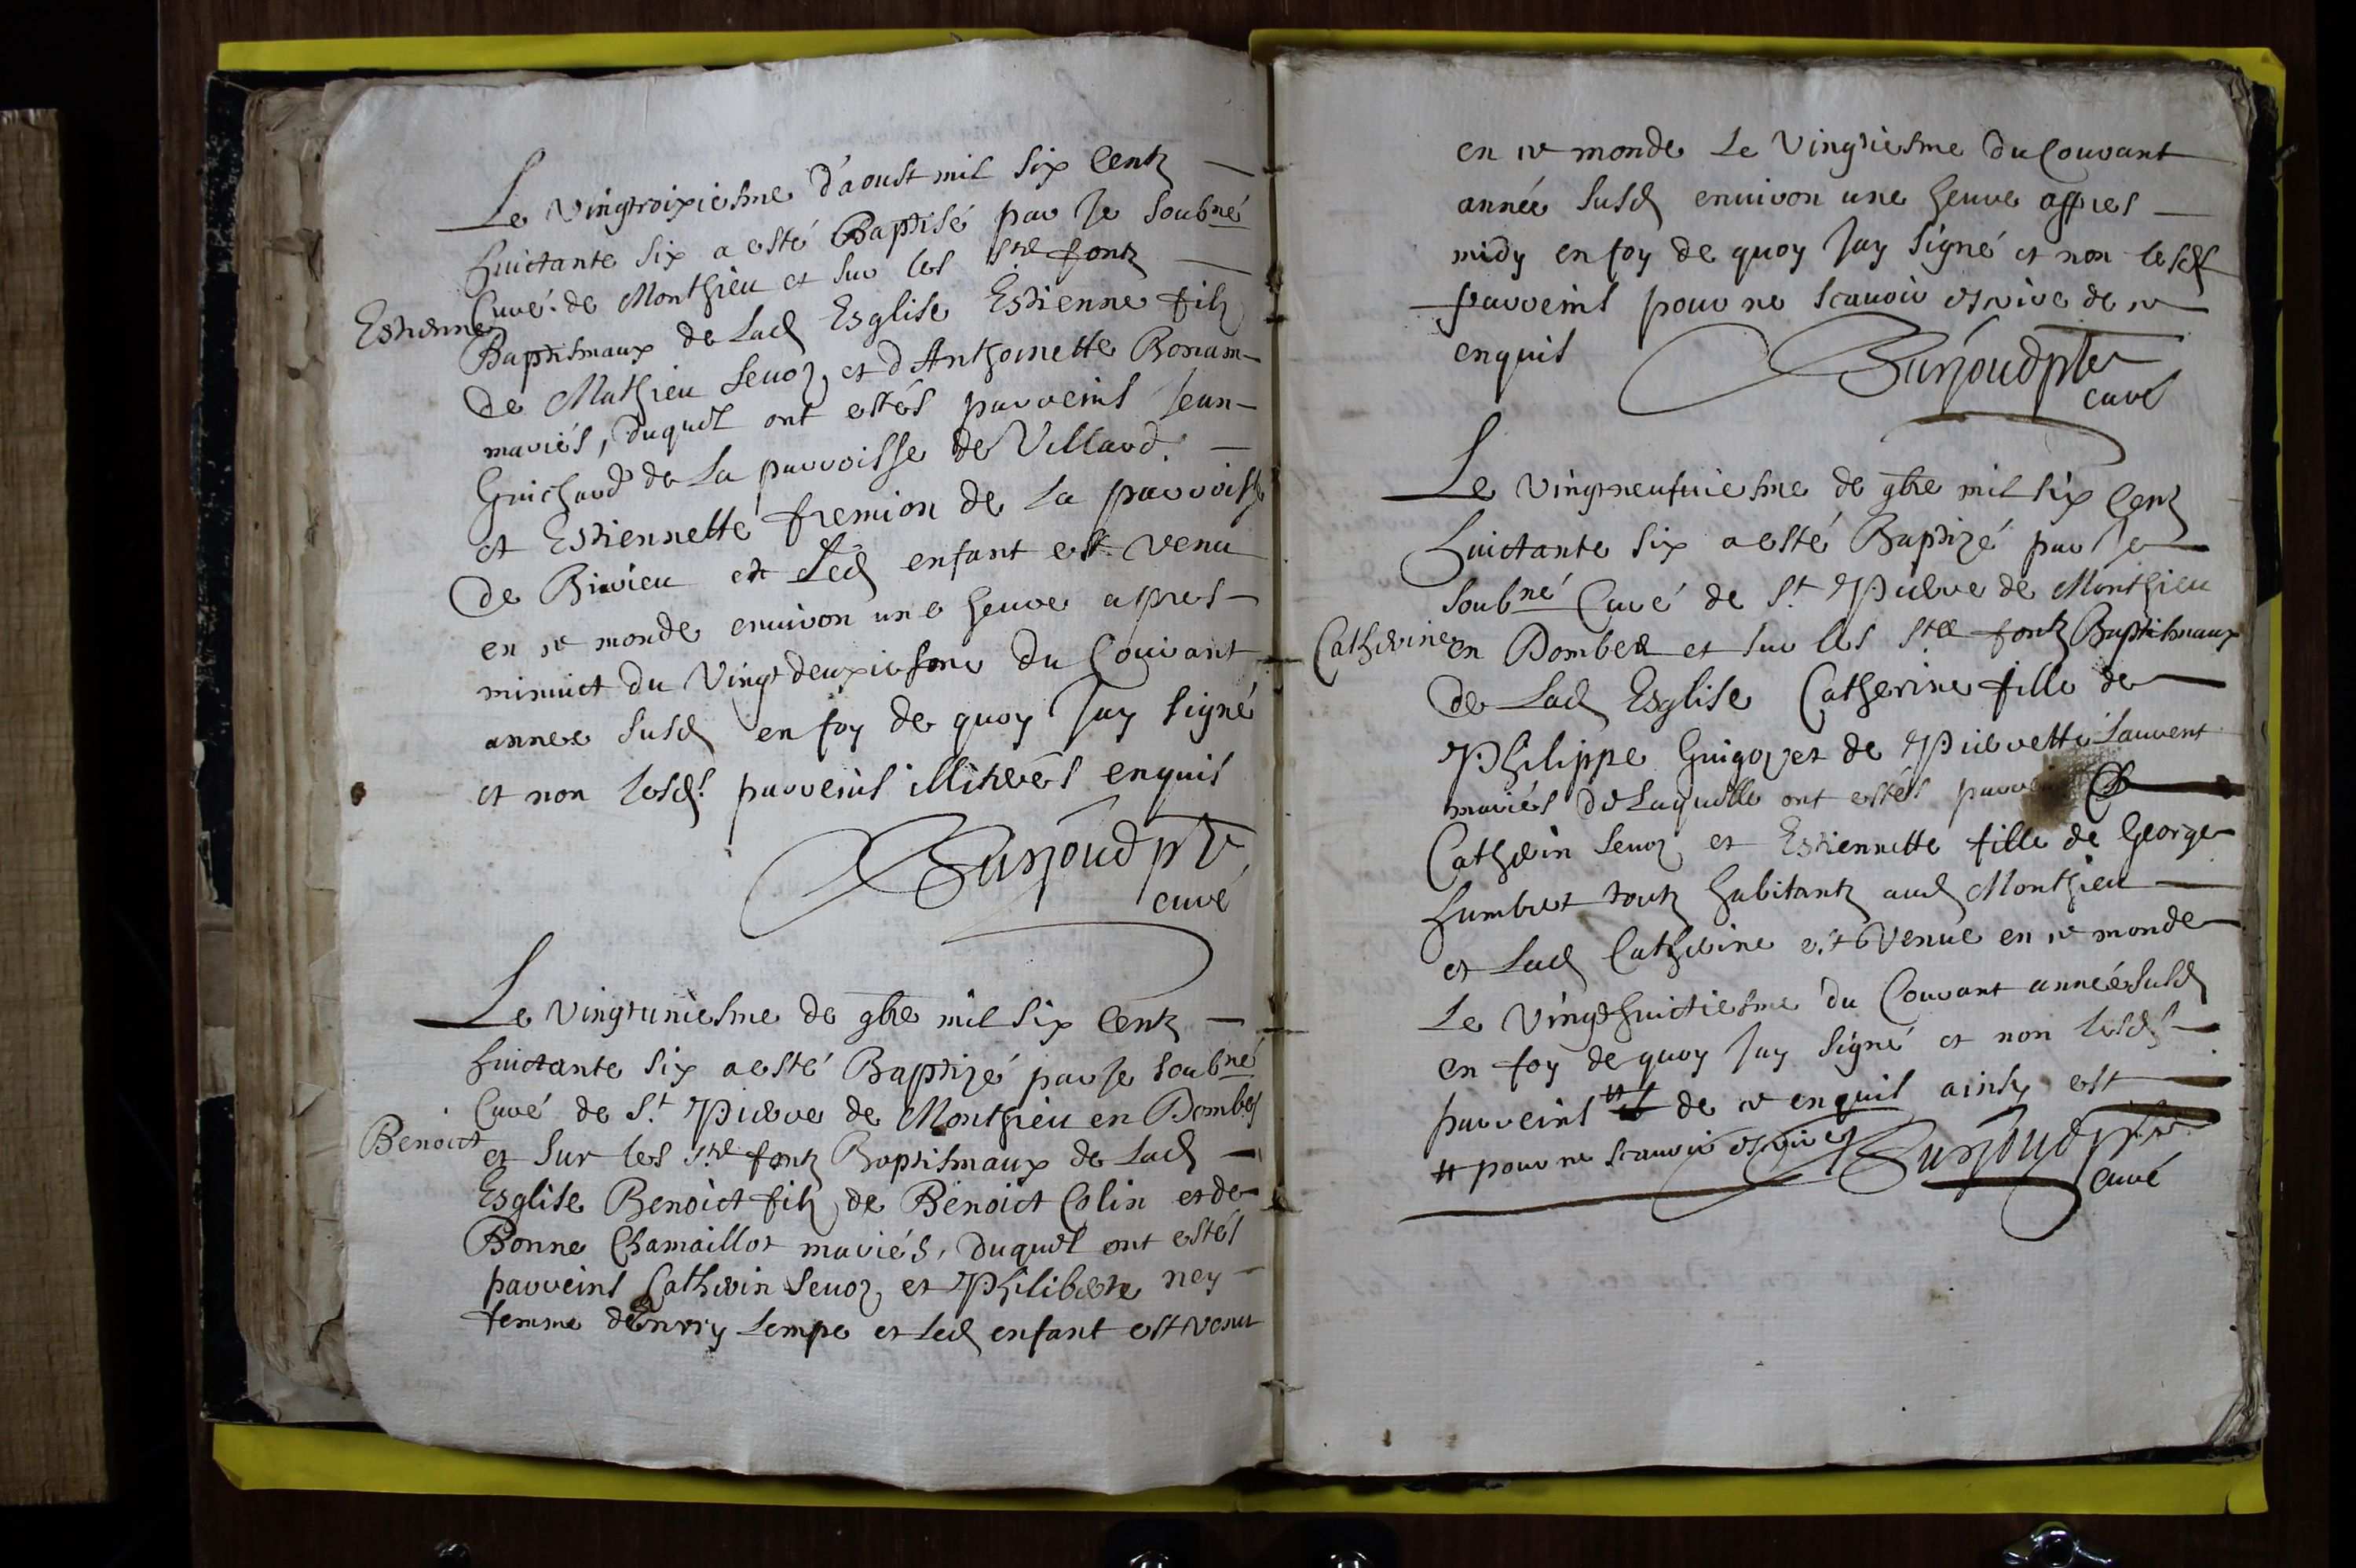 Le vingtroixiesme d'aoust mil six Centz
huictante six a esté Baptisé par Je soubné
Curé de Monthieu et sur les Stes fontz
Estienne
Baptismaux de Lad Esglise Estienne filz
de Mathieu Sevoz et d'Anthoinette Bonam
mariés, duquel ont estés parreins Jean
Guichard de La parroisse de Villard.
et Estiennette fremion de la parroisse
de Birieu et Led enfant est venu
en ce monde environ une heure apres
minuict du Vingt deuxiesme du Courant
annee susd en foy de quoy Jay signé
et non lesds. parreins illiterés enquis
Surjoud ptre
curé
Le vingtuniesme de 9bre mil six Centz
huictante six a esté Baptizé par Je soubné
Curé de St. Pierre de Monthieu en Dombes
Benoict
et sur les Stes fontz Baptismaux de Lad
Esglise Benoict filz de Benoict Colin et de
Bonne Chamaillot mariés, duquel ont estés
parreins Catherin Sevoz et Philiberte ney
femme d'Enry Lempe et Led enfant est venu
en ce monde Le Vingtiesme du Courant
année susd environ une heure apres
midy en foy de quoy Jay signé et non lesds
parreins pour ne scavoir escrire de ce
enquis
Surjoud ptre
curé
Le vingtneufviesme de 9bre mil six Centz
huictante six a esté Baptizé par Je
soubné Curé de St. Pierre de Monthieu
Catherine
en Dombes et sur les Stes fontz Baptismaux
de Lad Esglise Catherine fille de
Philippe Guigoz et de Pierrette Laurent
mariés de Laquelle ont estés
Catherin Sevoz et Estiennette fille de George
humbert toutz habitantz aud Monthieu
et Lad Catherine est Venue en ce monde
Le Vingthuictiesme du Courant année susd
en foy de quoy Jay signé et non lesds
parreins # de ce enquis ainsy est
# pour ne scavoir escrire
Surjoud ptre
curé